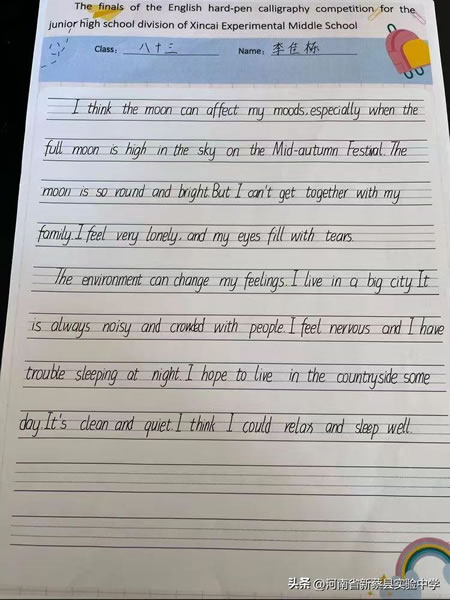 The finals of the English hard-pen calligraphy competition for the
junior high school division of Xincai Experimental Middle School
Class: 八十三 Name: 李佳栋
I think the moon can affect my moods, especially when the
full moon is high in the sky on the Mid-autumn Festival. The
moon is so round and bright. But I can't get together with my
family. I feel very lonely, and my eyes fill with tears.
The environment can change my feelings. I live in a big city. It
is always noisy and crowded with people. I feel nervous and I have
trouble sleeping at night. I hope to live in the countryside some
day. It's clean and quiet. I think I could relax and sleep well.
头条 @河南省新蔡县实验中学